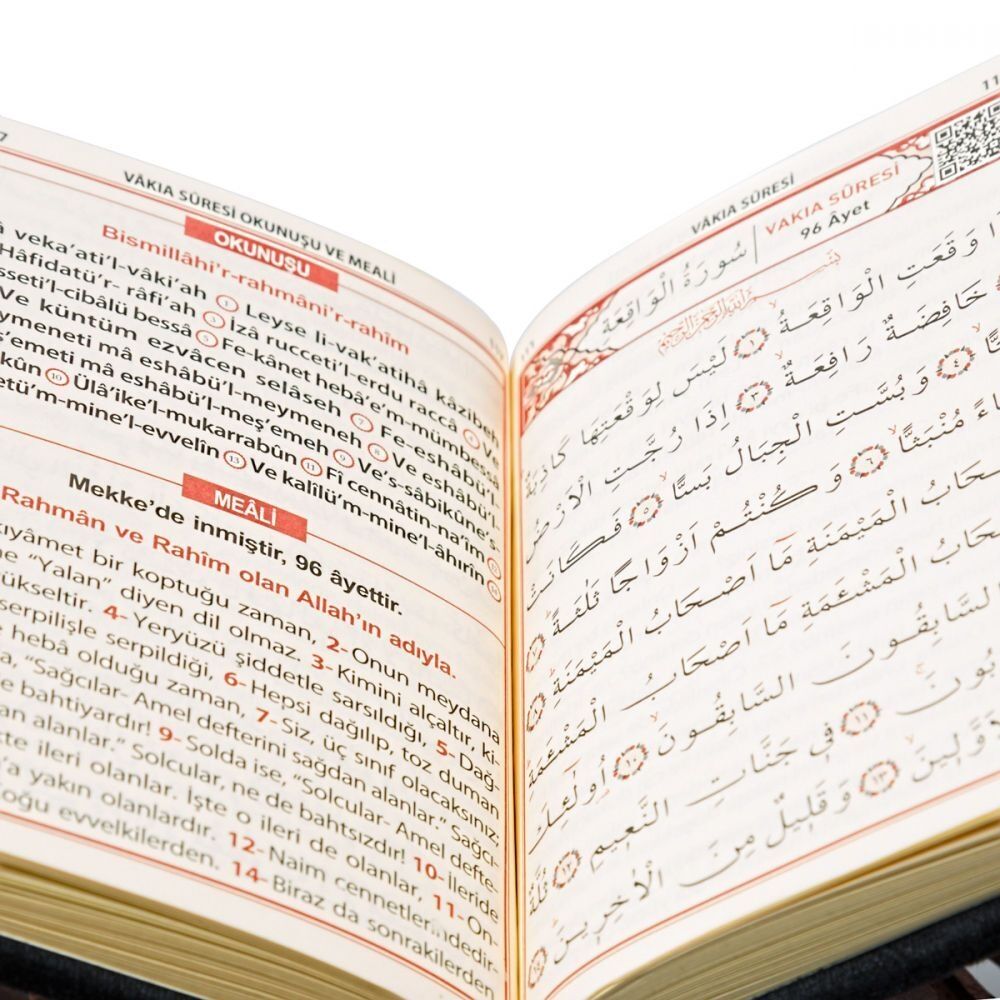 7
VÂKIA SÛRESİ OKUNUŞU VE MEALİ
OKUNUŞU
Bismillâhi'r-rahmâni'r-rahîm
veka'ati'l-vâki'ah ① Leyse li-vak'atihâ kâzibeh
Hâfidatü'r- râfi'ah ③ İzâ rucceti'l-erdu raccâ ④ Ve
sseti'l-cibâlü bessâ ⑤ Fe-kânet hebâ'e'm-mümbessâ
Ve küntüm ezvâcen selâseh ⑦ Fe-eshâbü'l-
ymeneti mâ eshâbü'l-meymeneh ⑧ Ve eshâbü'l-
ş'emeti mâ eshâbü'l-meş'emeh ⑨ Ve's-sâbikûne's-
kûn ⑩ Ülâ'ike'l-mukarrabûn ⑪ Fî cennâtin-na'îm ⑫
etü'm-mine'l-evvelîn ⑬ Ve kalîlü'm-mine'l-âhırîn ⑭
MEÂLİ
Mekke'de inmiştir, 96 âyettir.
Rahmân ve Rahîm olan Allah'ın adıyla.
kıyâmet bir koptuğu zaman, 2- Onun meydana
ne "Yalan" diyen dil olmaz. 3- Kimini alçaltır, ki-
yükseltir. 4- Yeryüzü şiddetle sarsıldığı, 5- Dağ-
serpilişle serpildiği, 6- Hepsi dağılıp, toz duman
heba olduğu zaman, 7- Siz, üç sınıf olacaksınız;
"Sağcılar- Amel defterini sağdan alanlar." Sağcı-
e bahtiyardır! 9- Solda ise, "Solcular- Amel defte-
an alanlar." Solcular, ne de bahtsızdır! 10- İleride
te ileri olanlar. İşte o ileri de olanlar, 11- On-
'a yakın olanlardır. 12- Naim cennetlerindedir-
Çoğu evvelkilerden. 14- Biraz da sonrakilerden
11
VÂKIA SÛRESİ
سُورَةُ الْوَاقِعَةِ
VAKIA SÛRESİ
96 Âyet
بِسْمِ اللّٰهِ الرَّحْمٰنِ الرَّحِيمِ
وَقَعَتِ الْوَاقِعَةُ ﴿١﴾ لَيْسَ لِوَقْعَتِهَا كَاذِبَةٌ
خَافِضَةٌ رَافِعَةٌ ﴿٣﴾ اِذَا رُجَّتِ الْاَرْضُ
﴿٤﴾ وَبُسَّتِ الْجِبَالُ بَسًّا ﴿٥﴾ فَكَانَتْ
مُنْبَثًّا ﴿٦﴾ وَكُنْتُمْ اَزْوَاجًا ثَلٰثَةً ﴿٧﴾
الْمَيْمَنَةِ مَا اَصْحَابُ الْمَيْمَنَةِ ﴿٨﴾
الْمَشْـَٔمَةِ مَا اَصْحَابُ الْمَشْـَٔمَةِ
السَّابِقُونَ السَّابِقُونَ ﴿١٠﴾ اُولٰئِكَ
﴿١١﴾ فِي جَنَّاتِ النَّعِيمِ ﴿١٢﴾ ثُلَّةٌ
﴿١٣﴾ وَقَلِيلٌ مِنَ الْاٰخِرِينَ ﴿١٤﴾